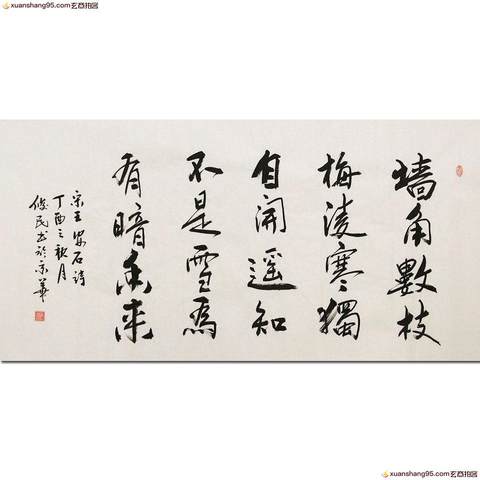 xuanshang95.com玄商拍图
墙角數枝
梅凌寒獨
自開遥知
不是雪爲
有暗香来
宋王安石詩
丁酉之秋月
俊民书於京華
xuanshang95.com玄商拍图